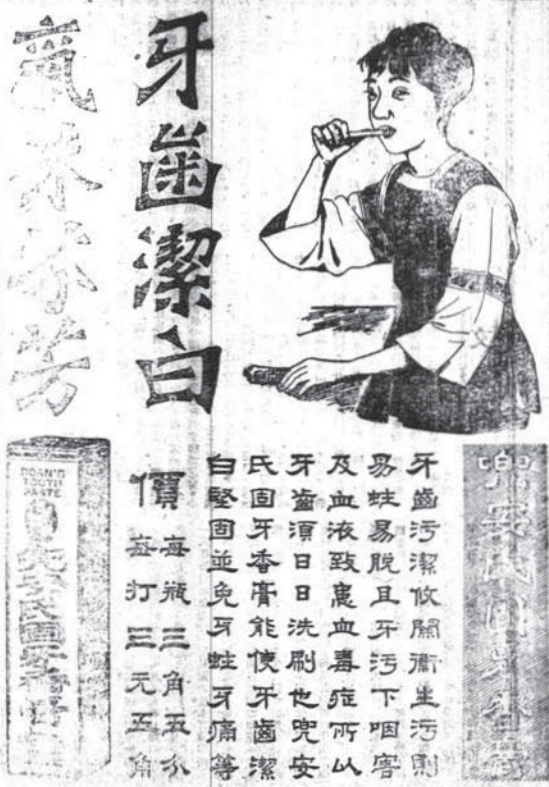 牙齒潔白
氣味芬芳
兜安氏固牙香膏
牙齒污潔攸關衞生污則
易蛀易脫且牙污下咽害
及血液致患血毒症所以
牙齒須日日洗刷也兜安
氏固牙香膏能使牙齒潔
白堅固並免牙蛀牙痛等
價
每瓶三角五分
每打三元五角
DOAN'S
TOOTH
PASTE
兜安氏固牙香膏